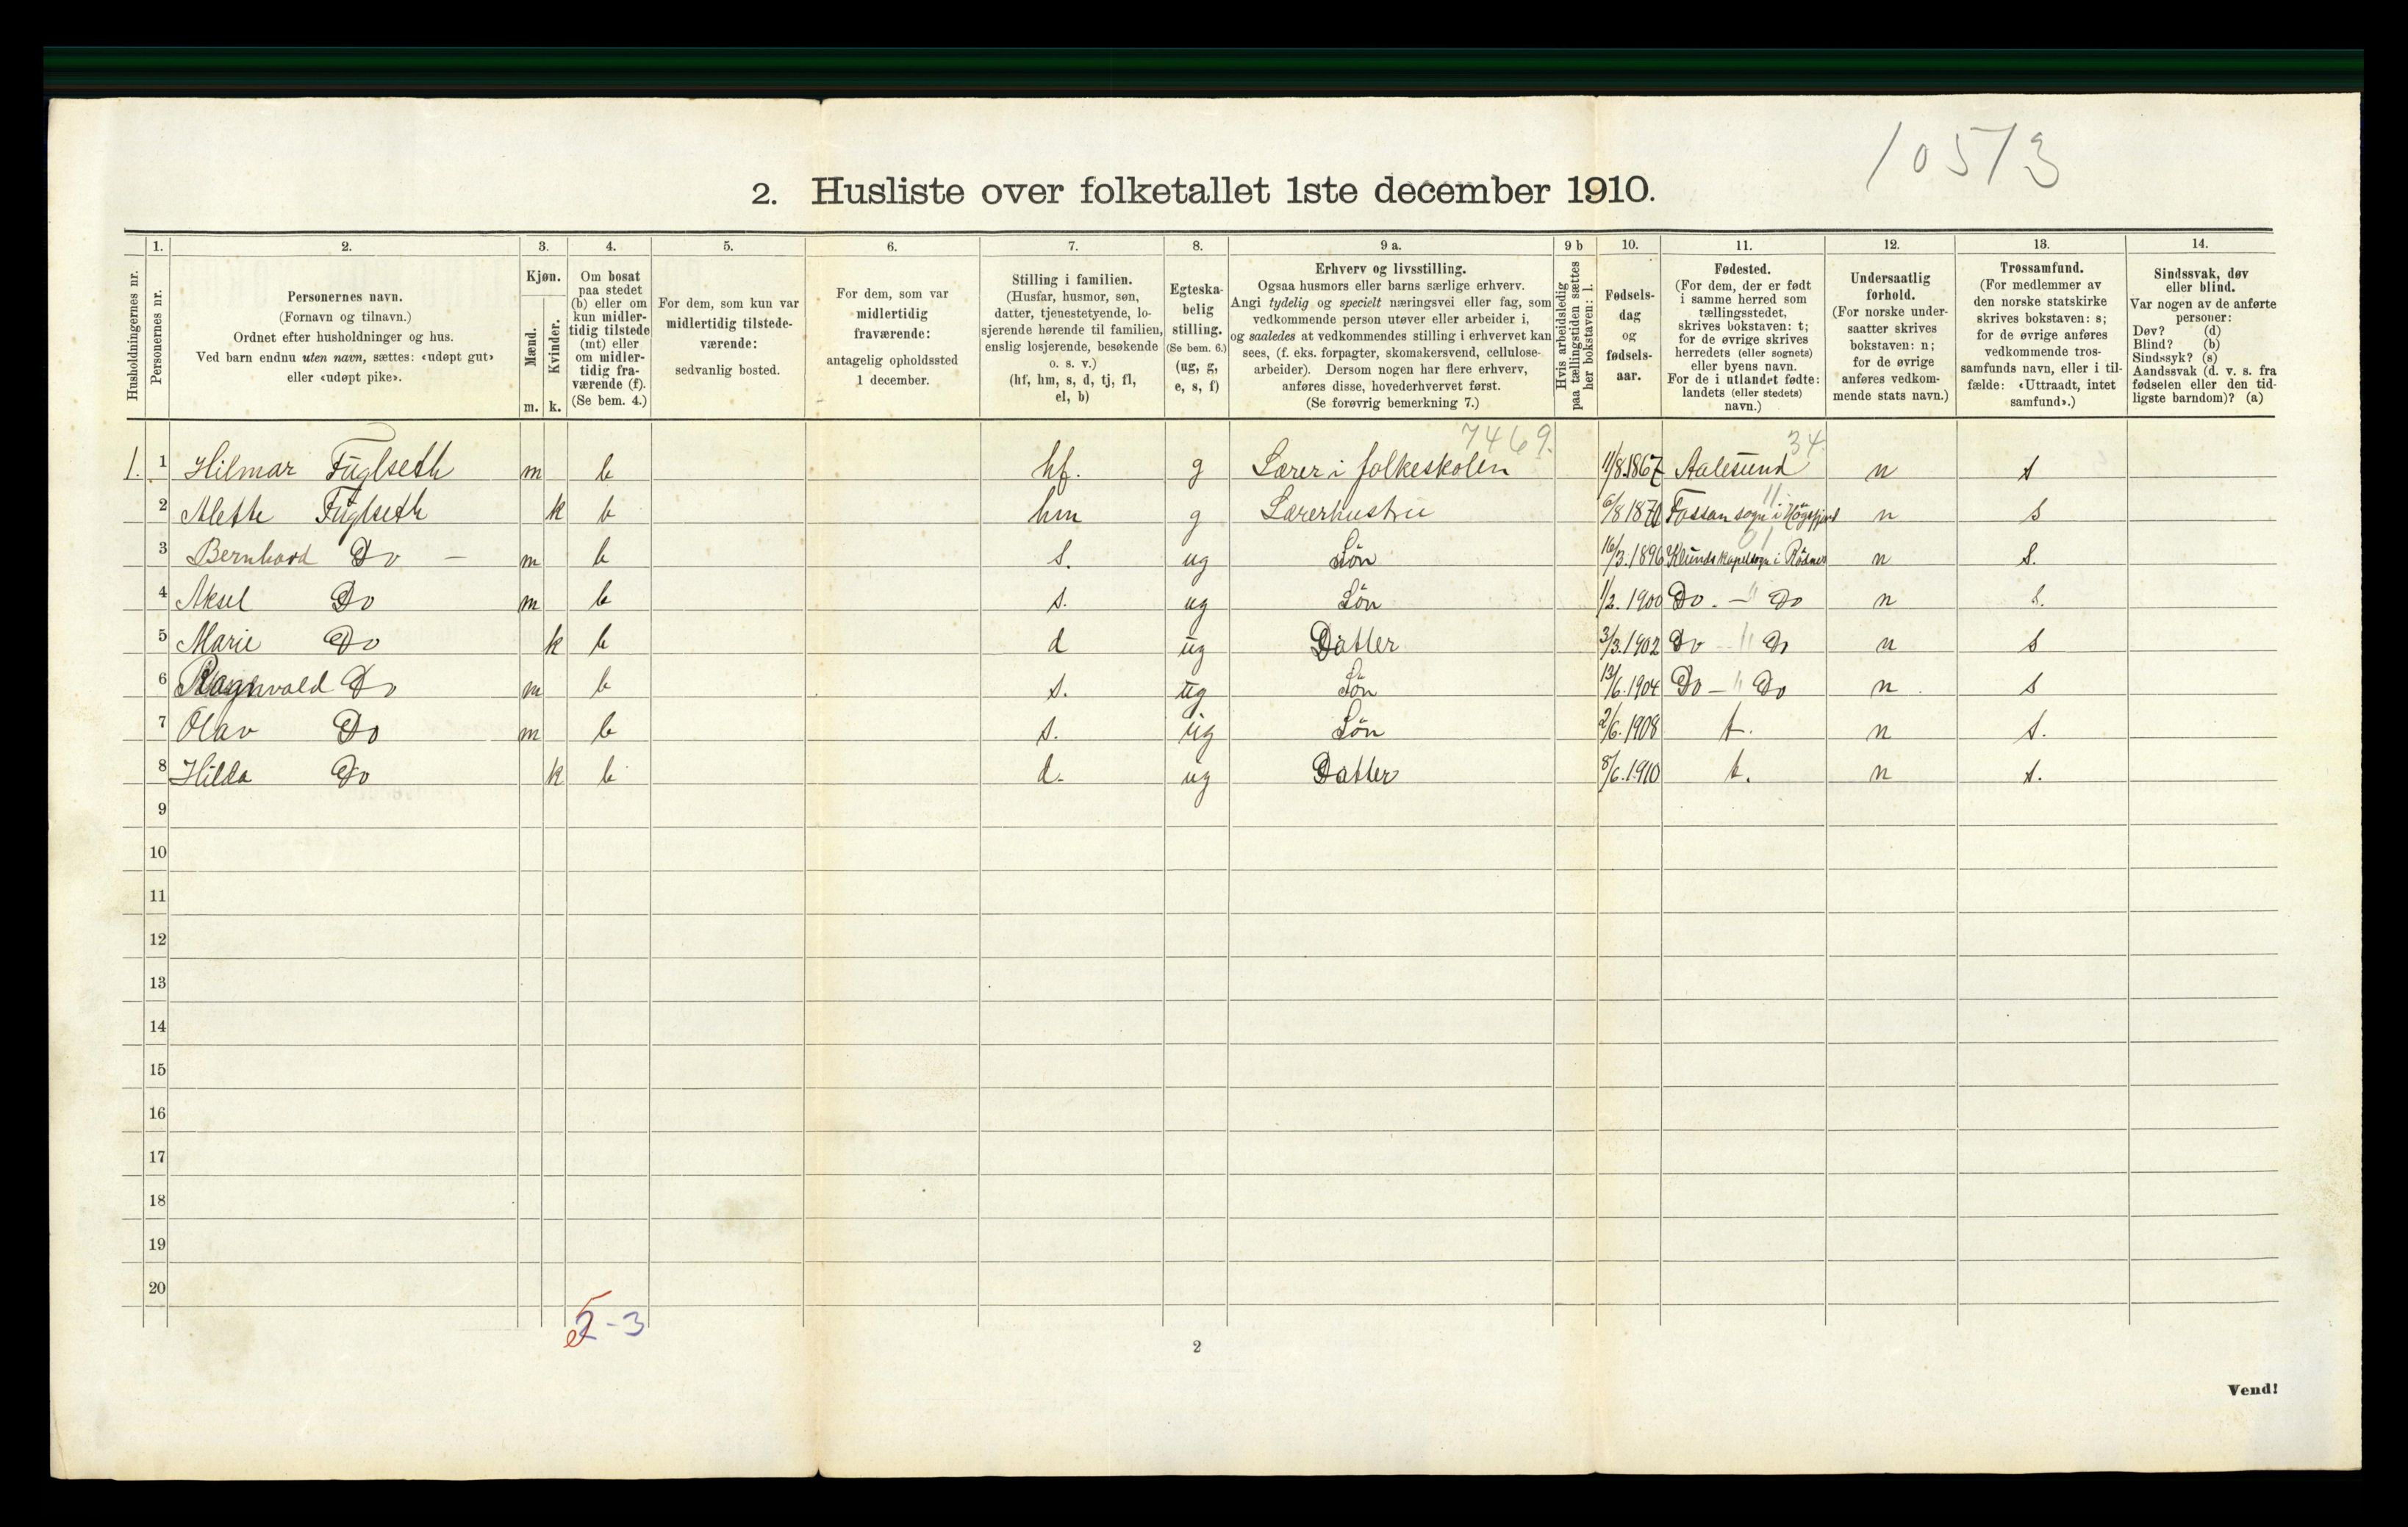 10513
2. Husliste over folketallet 1ste december 1910.
Husholdningernes nr.
1.
Personernes nr.
2.
Personernes navn.
(Fornavn og tilnavn.)
Ordnet efter husholdninger og hus.
Ved barn endnu uten navn, sættes: «udøpt gut»
eller «udøpt pike».
3.
Kjøn.
Mænd.
Kvinder.
m. k.
4.
Om bosat
paa stedet
(b) eller om
kun midler-
tidig tilstede
(mt) eller
om midler-
tidig fra-
værende (f).
(Se bem. 4.)
5.
For dem, som kun var
midlertidig tilstede-
værende:
sedvanlig bosted.
6.
For dem, som var
midlertidig
fraværende:
antagelig opholdssted
1 december.
7.
Stilling i familien.
(Husfar, husmor, søn,
datter, tjenestetyende, lo-
sjerende hørende til familien,
enslig losjerende, besøkende
o. s. v.)
(hf, hm, s, d, tj, fl,
el, b)
8.
Egteska-
belig
stilling.
(Se bem. 6.)
(ug, g,
e, s, f)
9 a.
Erhverv og livsstilling.
Ogsaa husmors eller barns særlige erhverv.
Angi tydelig og specielt næringsvei eller fag, som
vedkommende person utøver eller arbeider i,
og saaledes at vedkommendes stilling i erhvervet kan
sees, (f. eks. forpagter, skomakersvend, cellulose-
arbeider). Dersom nogen har flere erhverv,
anføres disse, hovederhvervet først.
(Se forøvrig bemerkning 7.)
9 b
Hvis arbeidsledig
paa tællingstiden sættes
her bokstaven: l.
10.
Fødsels-
dag
og
fødsels-
aar.
11.
Fødested.
(For dem, der er født
i samme herred som
tællingsstedet,
skrives bokstaven: t;
for de øvrige skrives
herredets (eller sognets)
eller byens navn.
For de i utlandet fødte:
landets (eller stedets)
navn.)
12.
Undersaatlig
forhold.
(For norske under-
saatter skrives
bokstaven: n;
for de øvrige
anføres vedkom-
mende stats navn.)
13.
Trossamfund.
(For medlemmer av
den norske statskirke
skrives bokstaven: s;
for de øvrige anføres
vedkommende tros-
samfunds navn, eller i til-
fælde: «Uttraadt, intet
samfund».)
14.
Sindssvak, døv
eller blind.
Var nogen av de anførte
personer:
Døv? (d)
Blind? (b)
Sindssyk? (s)
Aandssvak (d. v. s. fra
fødselen eller den tid-
ligste barndom)? (a)
7469. 34
1. 1 Hilmar Fuglseth m b hf. g Lærer i folkeskolen 11/8 1867 Aalesund n s
2 Alette Fuglseth k b hm g Lærerhustru 6/8 1870 Fossan sogn i Høgsfjord n s
3 Bernhard Do – m b s. ug Søn 16/3. 1896 n s.
4 Aksel Do m b s. ug Søn 1/2. 1900 Do. – " Do n s.
5 Marie Do k b d ug Datter 3/3. 1902 Do – " Do n s
6 Ragnvald Do m b s. ug Søn 13/6. 1904 Do – " Do n s
7 Olav Do m b s. ug Søn 2/6. 1908 t. n s.
8 Hilda Do k b d. ug Datter 8/6. 1910 t. n s.
9
10
11
12
13
14
15
16
17
18
19
20
2-3
2
Vend!